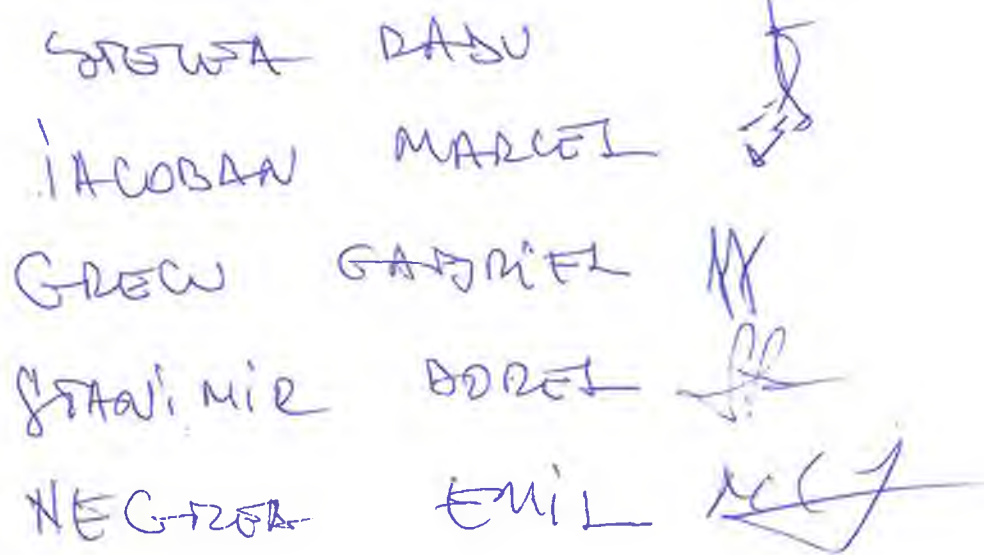 RADU
IACOBAN MARCEL
GRECU GABRIEL
STANIMIR DOREL
NEGREA EMIL